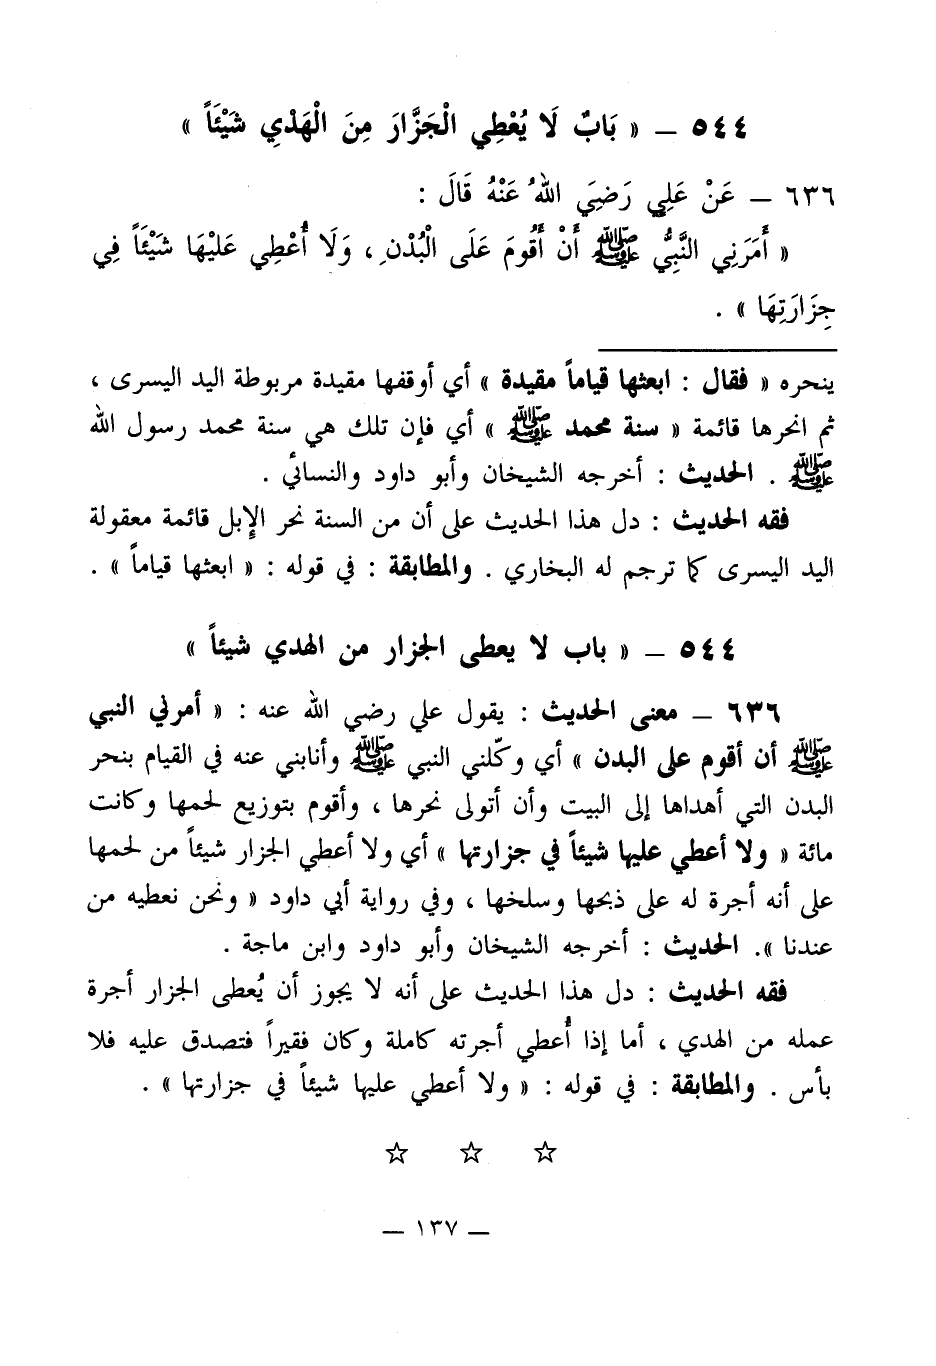 ٥٤٤ – « بَابٌ لَا يُعْطِي الْجَزَّارَ مِنَ الْهَدْيِ شَيْئَاً »
٦٣٦ – عَنْ عَلِي رَضِيَ اللهُ عَنْهُ قَالَ :
« أَمَرَنِي النَّبِيُّ ﷺ أَنْ أَقُومَ عَلَى الْبُدْنِ ، وَلَا أُعْطِي عَلَيْهَا شَيْئَاً فِي
جِزَارَتِهَا » .
ينحره « فقال : ابعثها قياماً مقيدة » أي أوقفها مقيدة مربوطة اليد اليسرى ،
ثم انحرها قائمة « سنة محمد ﷺ » أي فإن تلك هي سنة محمد رسول الله
ﷺ . الحديث : أخرجه الشيخان وأبو داود والنسائي .
فقه الحديث : دل هذا الحديث على أن من السنة نحر الإبل قائمة معقولة
اليد اليسرى كما ترجم له البخاري . والمطابقة : في قوله : « ابعثها قياماً » .
٥٤٤ – « باب لا يعطى الجزار من الهدي شيئاً »
٦٣٦ – معنى الحديث : يقول علي رضي الله عنه : « أمرني النبي
ﷺ أن أقوم على البدن » أي وكّلني النبي ﷺ وأنابني عنه في القيام بنحر
البدن التي أهداها إلى البيت وأن أتولى نحرها ، وأقوم بتوزيع لحمها وكانت
مائة « ولا أعطي عليها شيئاً في جزارتها » أي ولا أعطي الجزار شيئاً من لحمها
على أنه أجرة له على ذبحها وسلخها ، وفي رواية أبي داود « ونحن نعطيه من
عندنا ». الحديث : أخرجه الشيخان وأبو داود وابن ماجة .
فقه الحديث : دل هذا الحديث على أنه لا يجوز أن يُعطى الجزار أجرة
عمله من الهدي ، أما إذا أُعطي أجرته كاملة وكان فقيراً فتصدق عليه فلا
بأس . والمطابقة : في قوله : « ولا أعطي عليها شيئاً في جزارتها » .
☆ ☆ ☆
– ١٣٧ –